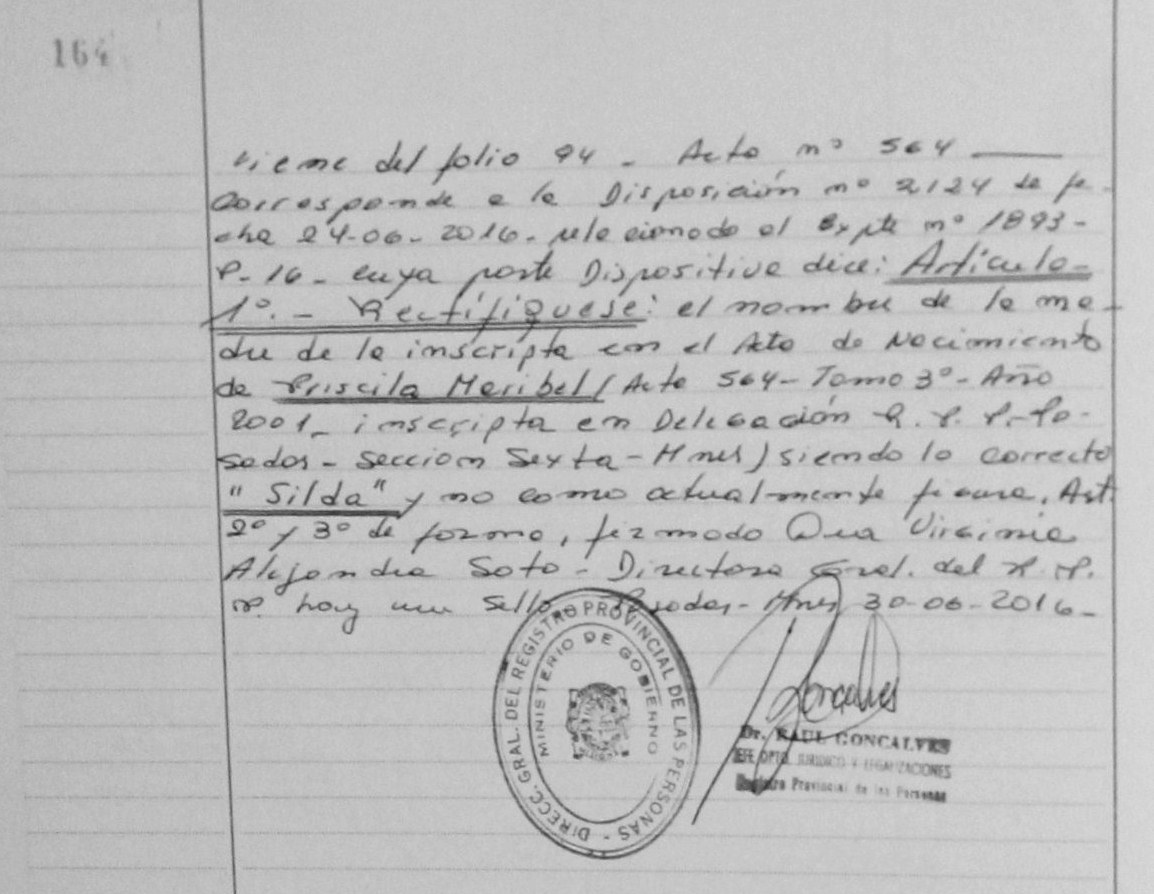 164
Viene del folio 94 - Acta nº 564
Corresponde a la Disposición nº 2124 de fe-
cha 24-06-2016- relacionado al Expte nº 1893-
P-16- cuya parte Dispositiva dice: Artículo-
1º.- Rectifíquese: el nombre de la ma-
dre de la inscripta en el Acta de Nacimiento
de Priscila Maribel (Acta 564 - Tomo 3º - Año
2001- inscripta en Delegación R. P. P. - Po-
sadas - Sección Sexta - Mnes) siendo lo correcto
"Silda" y no como actualmente figura. Art.
2º y 3º de forma, firmado Dra Virginia
Alejandra Soto - Directora Gral. del R. P.
P. hay un sello. Posadas - Mnes 30-06-2016-
DIRECC. GRAL. DEL REGISTRO PROVINCIAL DE LAS PERSONAS -
MINISTERIO DE GOBIERNO
Goncalves
Dr. RAUL GONCALVES
JEFE DPTO. JURIDICO Y LEGALIZACIONES
Registro Provincial de las Personas